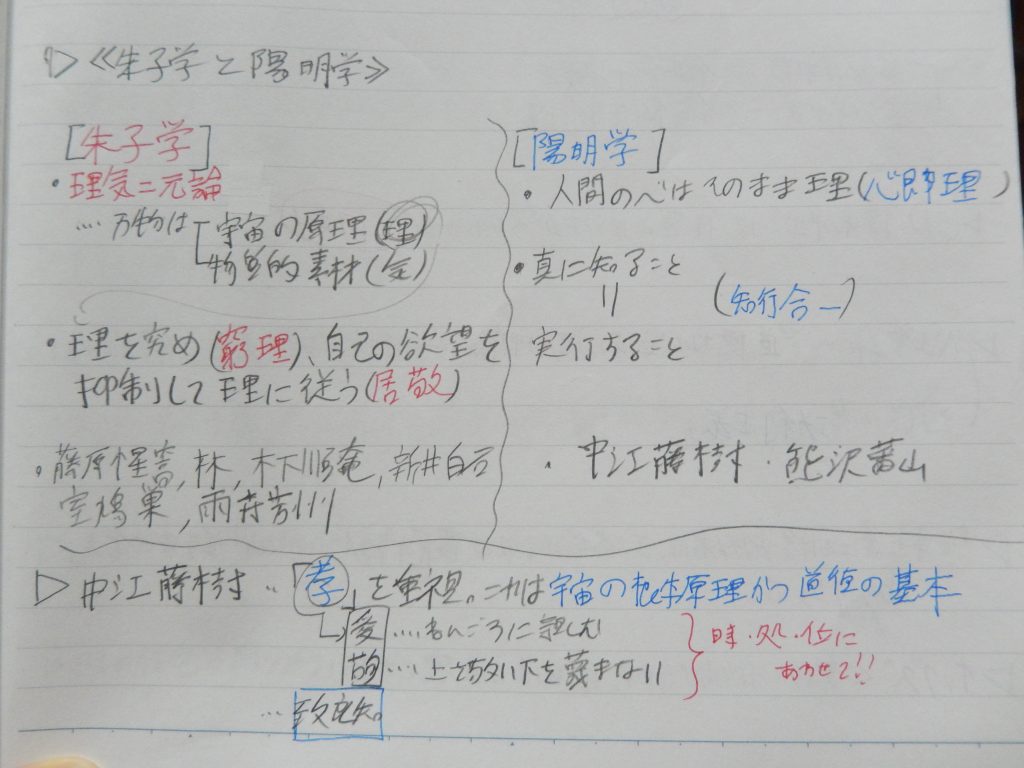 ▷《朱子学と陽明学》
[朱子学]
・理気二元論
…万物は 宇宙の原理(理)
物質的素材(気)
・理を究め(窮理)、自己の欲望を
抑制して理に従う(居敬)
・藤原惺窩,林,木下順庵,新井白石
室鳩巣,雨森芳洲
[陽明学]
・人間の心はそのまま理(心即理)
・真に知ること
||
(知行合一)
実行すること
・中江藤樹・熊沢蕃山
▷中江藤樹…「孝」を重視。これは宇宙の根本原理かつ道徳の基本
愛…ねんごろに親しむ
敬…上を敬い下を蔑まない
時・処・位に
あわせて!!
…致良知。